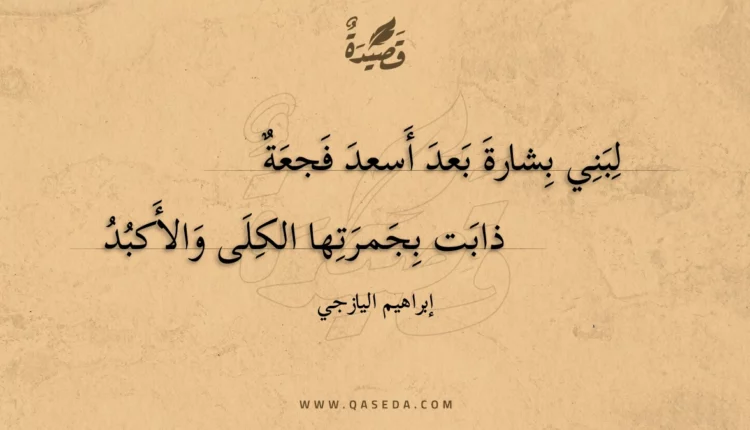 قَصِيدَةٌ
لِبَنِي بِشارةَ بَعدَ أَسعدَ فَجعَةٌ
ذابَت بِجَمرَتِها الكِلَى وَالأَكبُدُ
إبراهيم اليازجي
WWW.QASEDA.COM